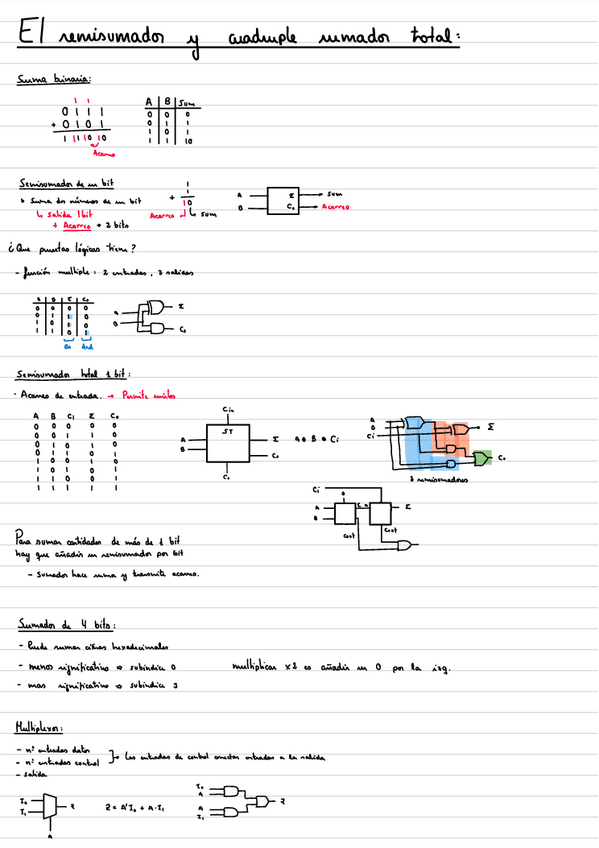 El semisumador y cuadruple sumador total:
Suma binaria:
1 1
0 1 1 1
+ 0 1 0 1
1 1 1 0 1 0
Acarreo
A B Sum
0 0 0
0 1 1
1 0 1
1 1 10
Semisumador de un bit
Suma dos números de un bit
↳ Salida 1 bit
+ Acarreo = 2 bits
1
+ 1
10
Acarreo ↲ ↳ sum
A
B
Σ
Co
Sum
Acarreo
¿Que puertas lógicas tiene?
- función multiple: 2 entradas, 2 salidas
A B Σ Co
0 0 0 0
0 1 1 0
1 0 1 0
1 1 0 1
And
A
B
Σ
Co
Semisumador total 1 bit:
· Acarreo de entrada. →
A B Ci Σ Co
0 0 0 0 0
0 0 1 1 0
0 1 0 1 0
0 1 1 0 1
1 0 0 1 0
1 0 1 0 1
1 1 0 0 1
1 1 1 1 1
Cin
ST
A
B
Σ
Co
Co
A ⊕ B ⊕ Ci
A
B
Ci
Σ
Co
semisumadores
Ci
A
B
Σ
Cout
Cout
Para sumar cantidades de más de 1 bit
hay que añadir un semisumador por bit
- Sumador hace suma y transmite acarreo.
Sumador de 4 bits:
- Puede sumar cifras hexadecimales
- menos significativo ⇒ subíndice 0
multiplicar x2 es añadir un 0 por la izq.
- mas significativo ⇒ subíndice 3
Multiplexor:
- nº entradas datos
- nº entradas control
Las entradas de control conectan entradas a la salida
- salida
I₀
I₁
Z
A
Z = A'I₀ + A·I₁
I₀
A
A
I₁
Z